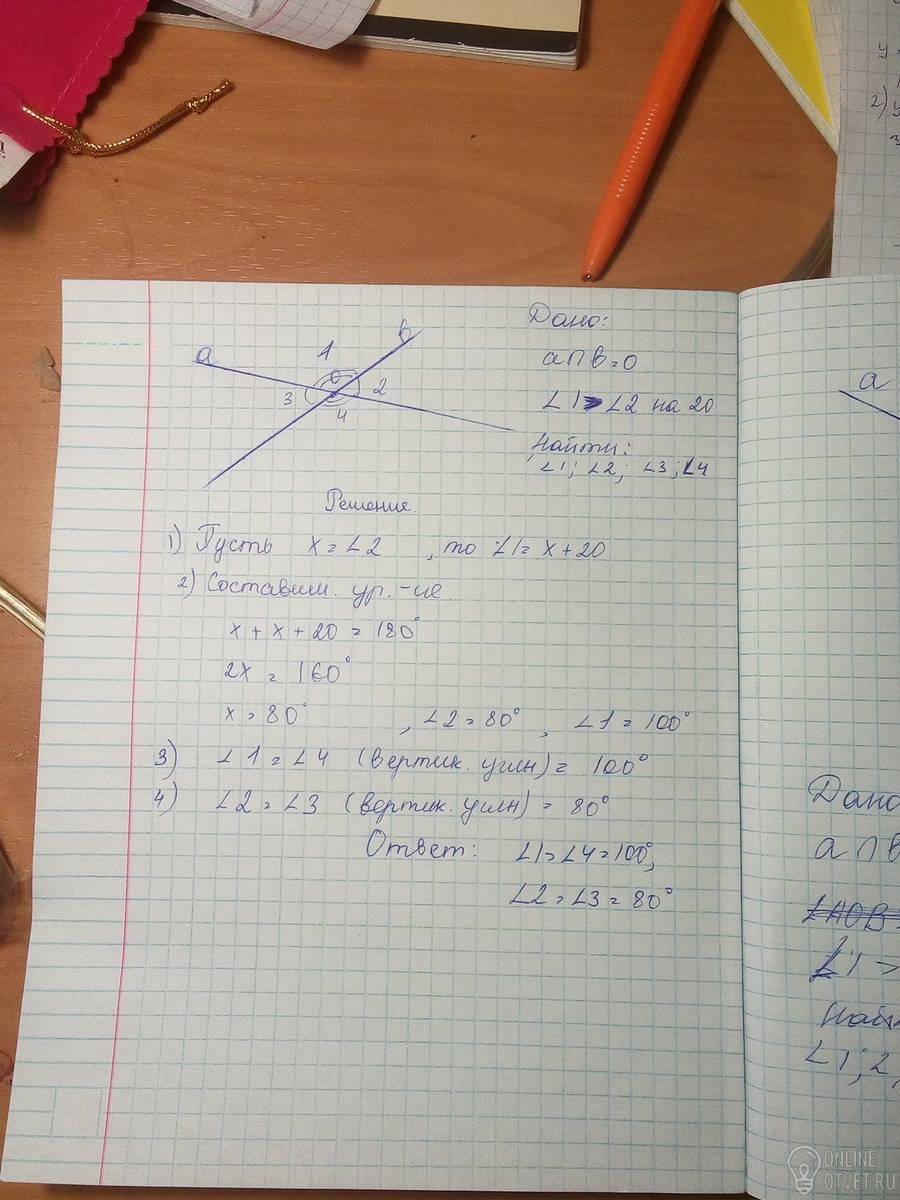 a
1
b
0
2
3
4
Дано:
a∩b=0
∠1>∠2 на 20
Найти:
∠1; ∠2; ∠3; ∠4
Решение.
1) Пусть x=∠2, то ∠1=x+20
2) Составим. ур.-ие
x+x+20=180°
2x=160°
x=80°, ∠2=80°, ∠1=100°
3) ∠1=∠4 (вертик. углы)=100°
4) ∠2=∠3 (вертик. углы)=80°
Ответ: ∠1=∠4=100°,
∠2=∠3=80°
a
Дано
a∩b
∠AOB=
∠1
∠1; 2,
y
2) y
ONLINE
OTVET.RU